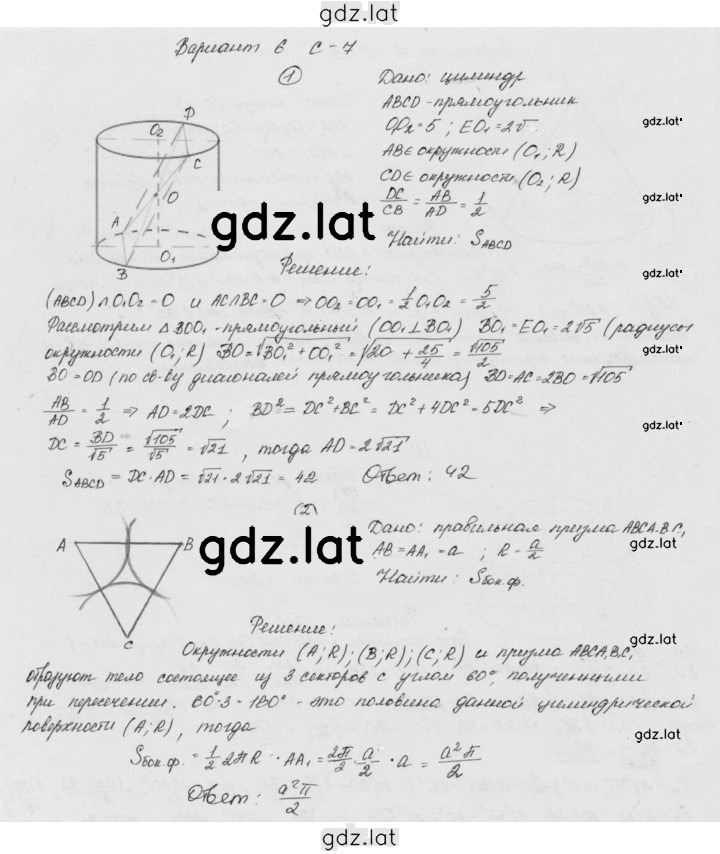 gdz.lat
Вариант 6 С-7
1
Дано: цилиндр
ABCD - прямоугольник
OO₂=5; EO₁=2√
AB∈ окружности (O₁; R)
CD∈ окружности (O₂; R)
DC/CB = AB/AD = 1/2
Найти: S_ABCD
gdz.lat
gdz.lat
gdz.lat
D
O₂
C
O
A
O₁
B
gdz.lat
Решение:
(ABCD)∩O₁O₂=O и AC∩BC=O ⇒ OO₂=OO₁=1/2 O₁O₂=5/2
Рассмотрим △BOO₁ - прямоугольный (OO₁⊥BO₁) BO₁=EO₁=2√5 (радиусы
окружности (O₁; R) BO=√(BO₁²+OO₁²)=√(20+25/4)=√105/2
BO=OD (по св-ву диагоналей прямоугольника) BD=AC=2BO=√105
AB/AD=1/2 ⇒ AD=2DC; BD²=DC²+BC²=DC²+4DC²=5DC² ⇒
DC=BD/√5=√105/√5=√21, тогда AD=2√21
S_ABCD=DC·AD=√21·2√21=42 Ответ: 42
gdz.lat
gdz.lat
2
Дано: правильная призма ABCA₁B₁C₁
AB=AA₁=a; R=a/2
Найти: Sбок.ф.
gdz.lat
gdz.lat
A
B
C
Решение:
Окружности (A; R); (B; R); (C; R) и призма ABCA₁B₁C₁
образуют тело состоящее из 3 секторов с углом 60°, полученными
при пересечении. 60°·3=180° - это половина данной цилиндрической
поверхности (A; R), тогда
Sбок.ф.=1/2 2πR·AA₁=2π/2·a/2·a=a²π/2
Ответ: a²π/2
gdz.lat
gdz.lat
gdz.lat